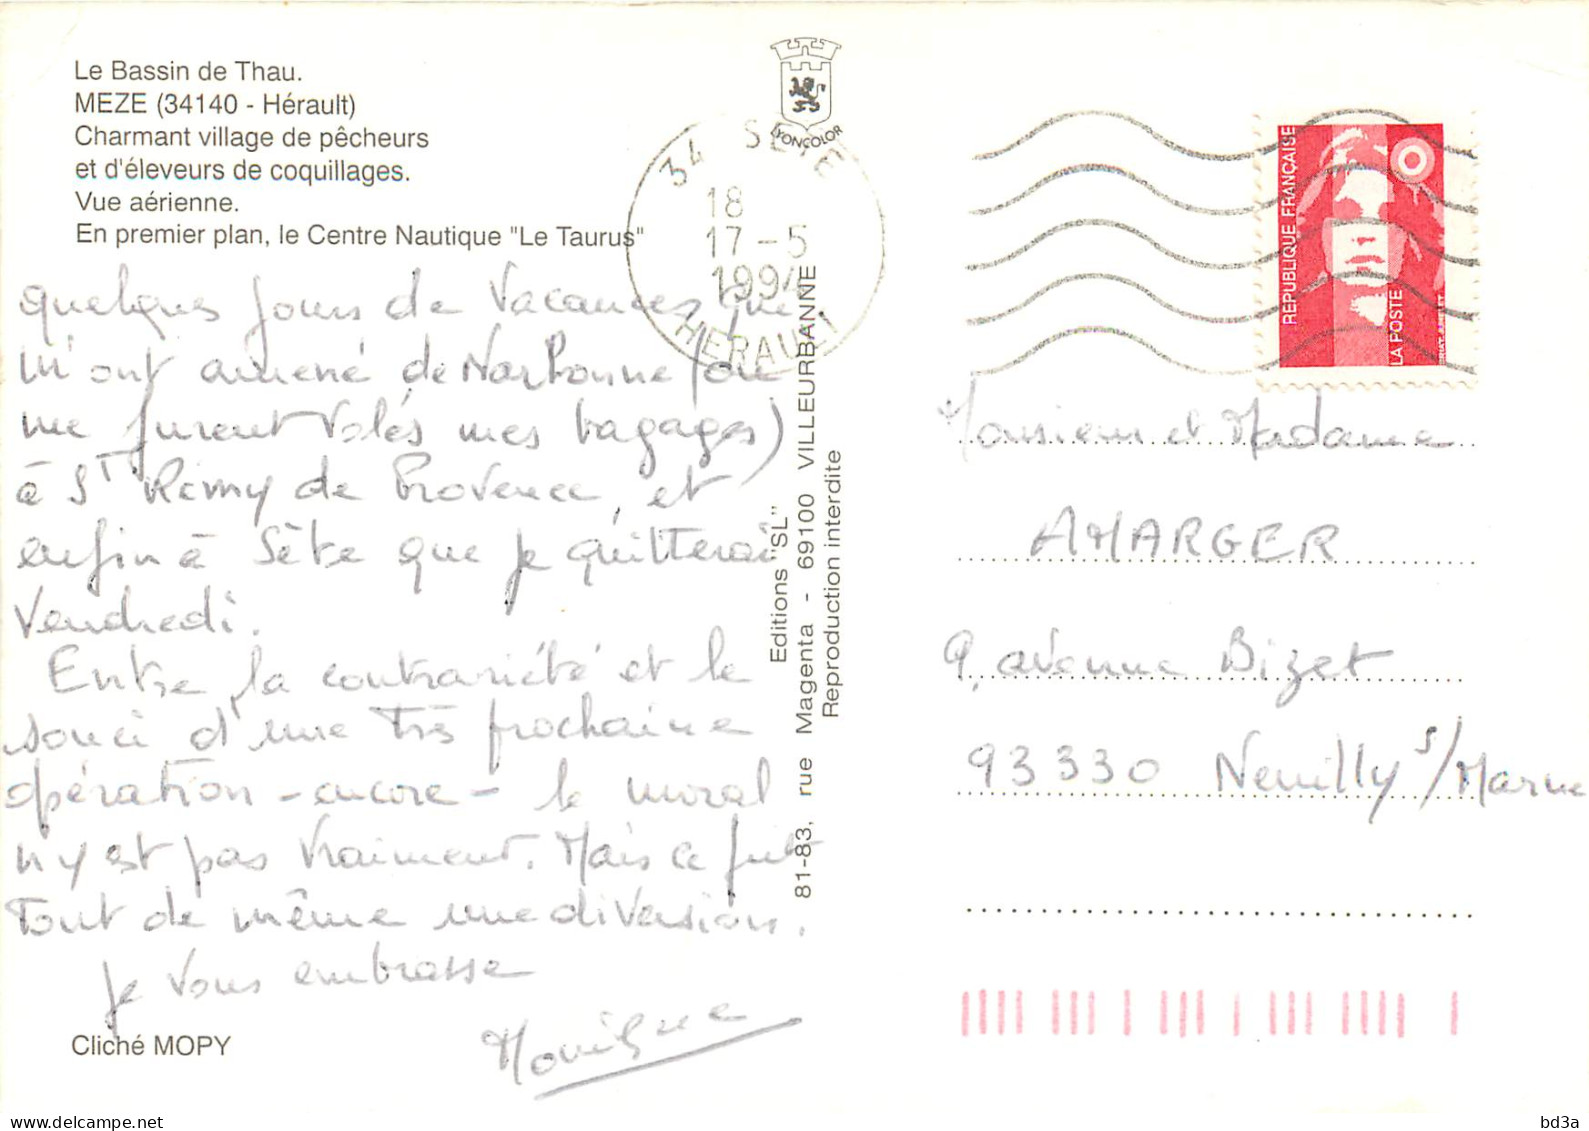 Le Bassin de Thau.
MEZE (34140 - Hérault)
Charmant village de pêcheurs
et d'éleveurs de coquillages.
Vue aérienne.
En premier plan, le Centre Nautique "Le Taurus"
quelques jours de vacances que
m'ont amené de Narbonne (où
me furent volés mes bagages)
à St Rémy de Provence, et
enfin à Sète que je quitterai
Vendredi.
Entre la contrariété et le
souci d'une très prochaine
opération - encore - le moral
n'y est pas vraiment. Mais ce fut
tout de même une diversion.
Je vous embrasse
Monique
Cliché MOPY
LYONCOLOR
34 SETE
18
17-5
1994
HERAULT
Editions "SL"
81-83, rue Magenta - 69100 VILLEURBANNE
Reproduction interdite
REPUBLIQUE FRANÇAISE
LA POSTE
Monsieur et Madame
AMARGER
9, avenue Bizet
93330 Neuilly s/Marne
delcampe.net
bd3a